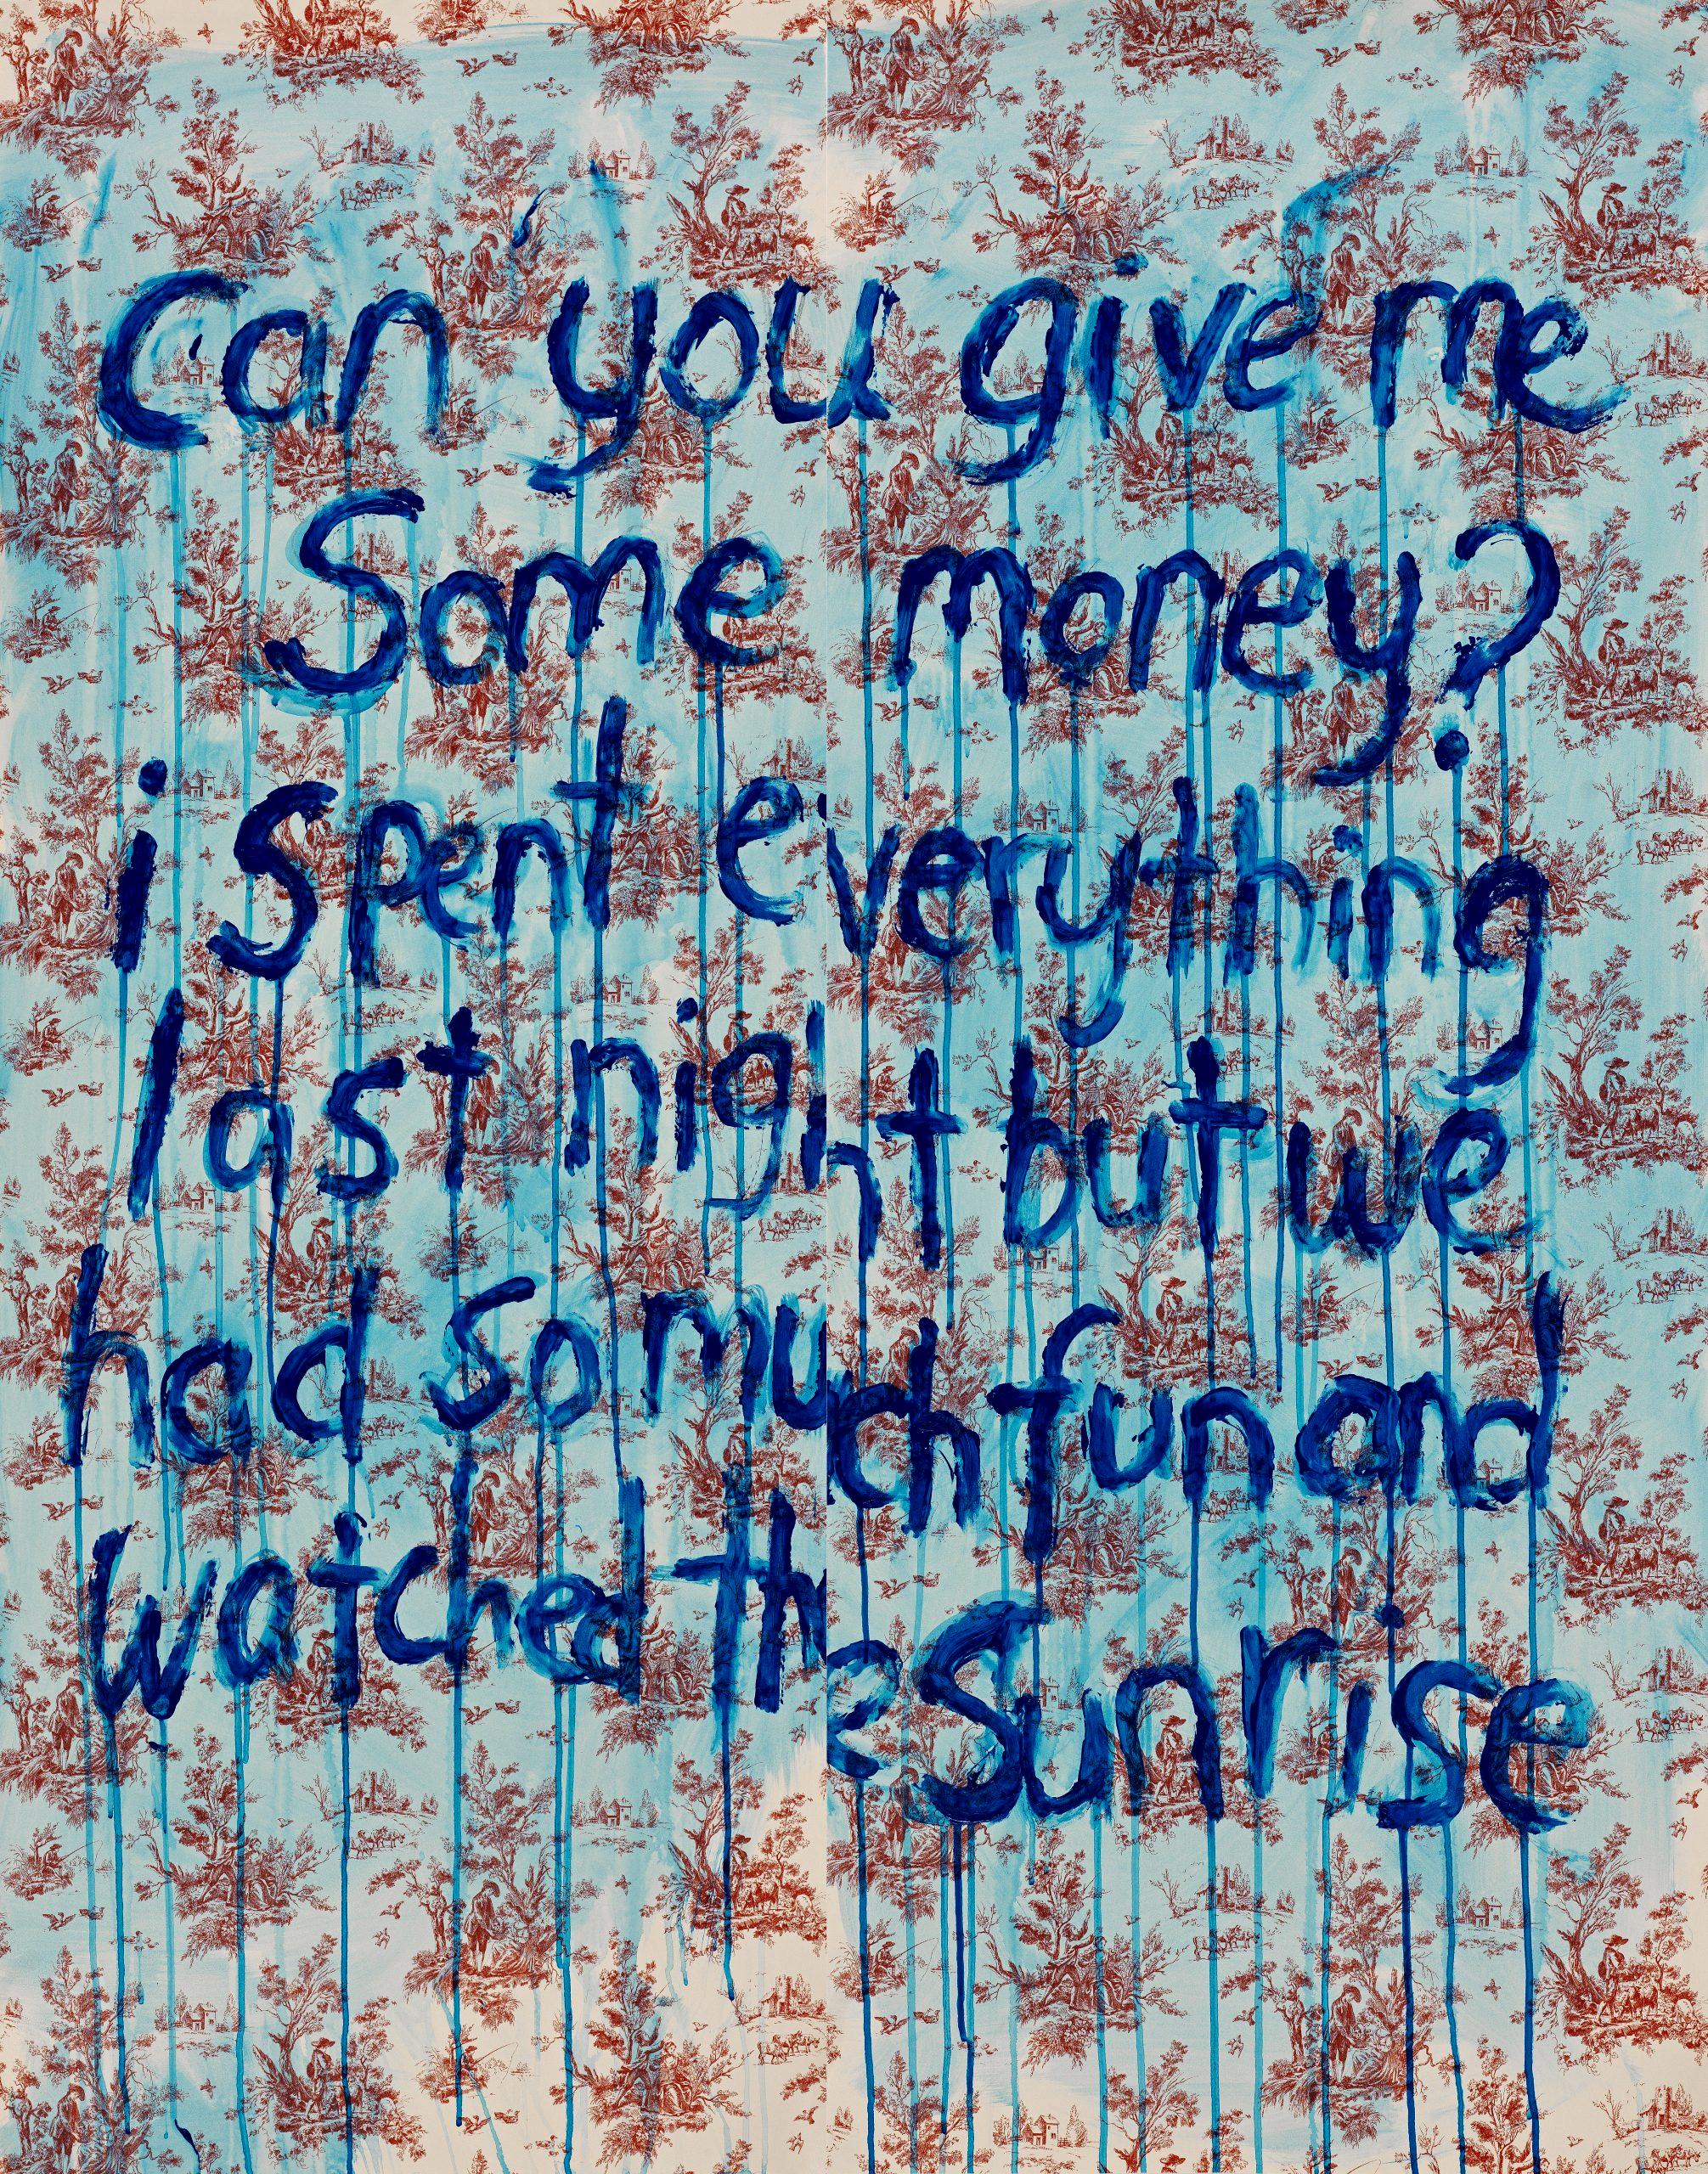 Can you give me
Some money?
i spent everything
last night but we
had so much fun and
watched the Sunrise